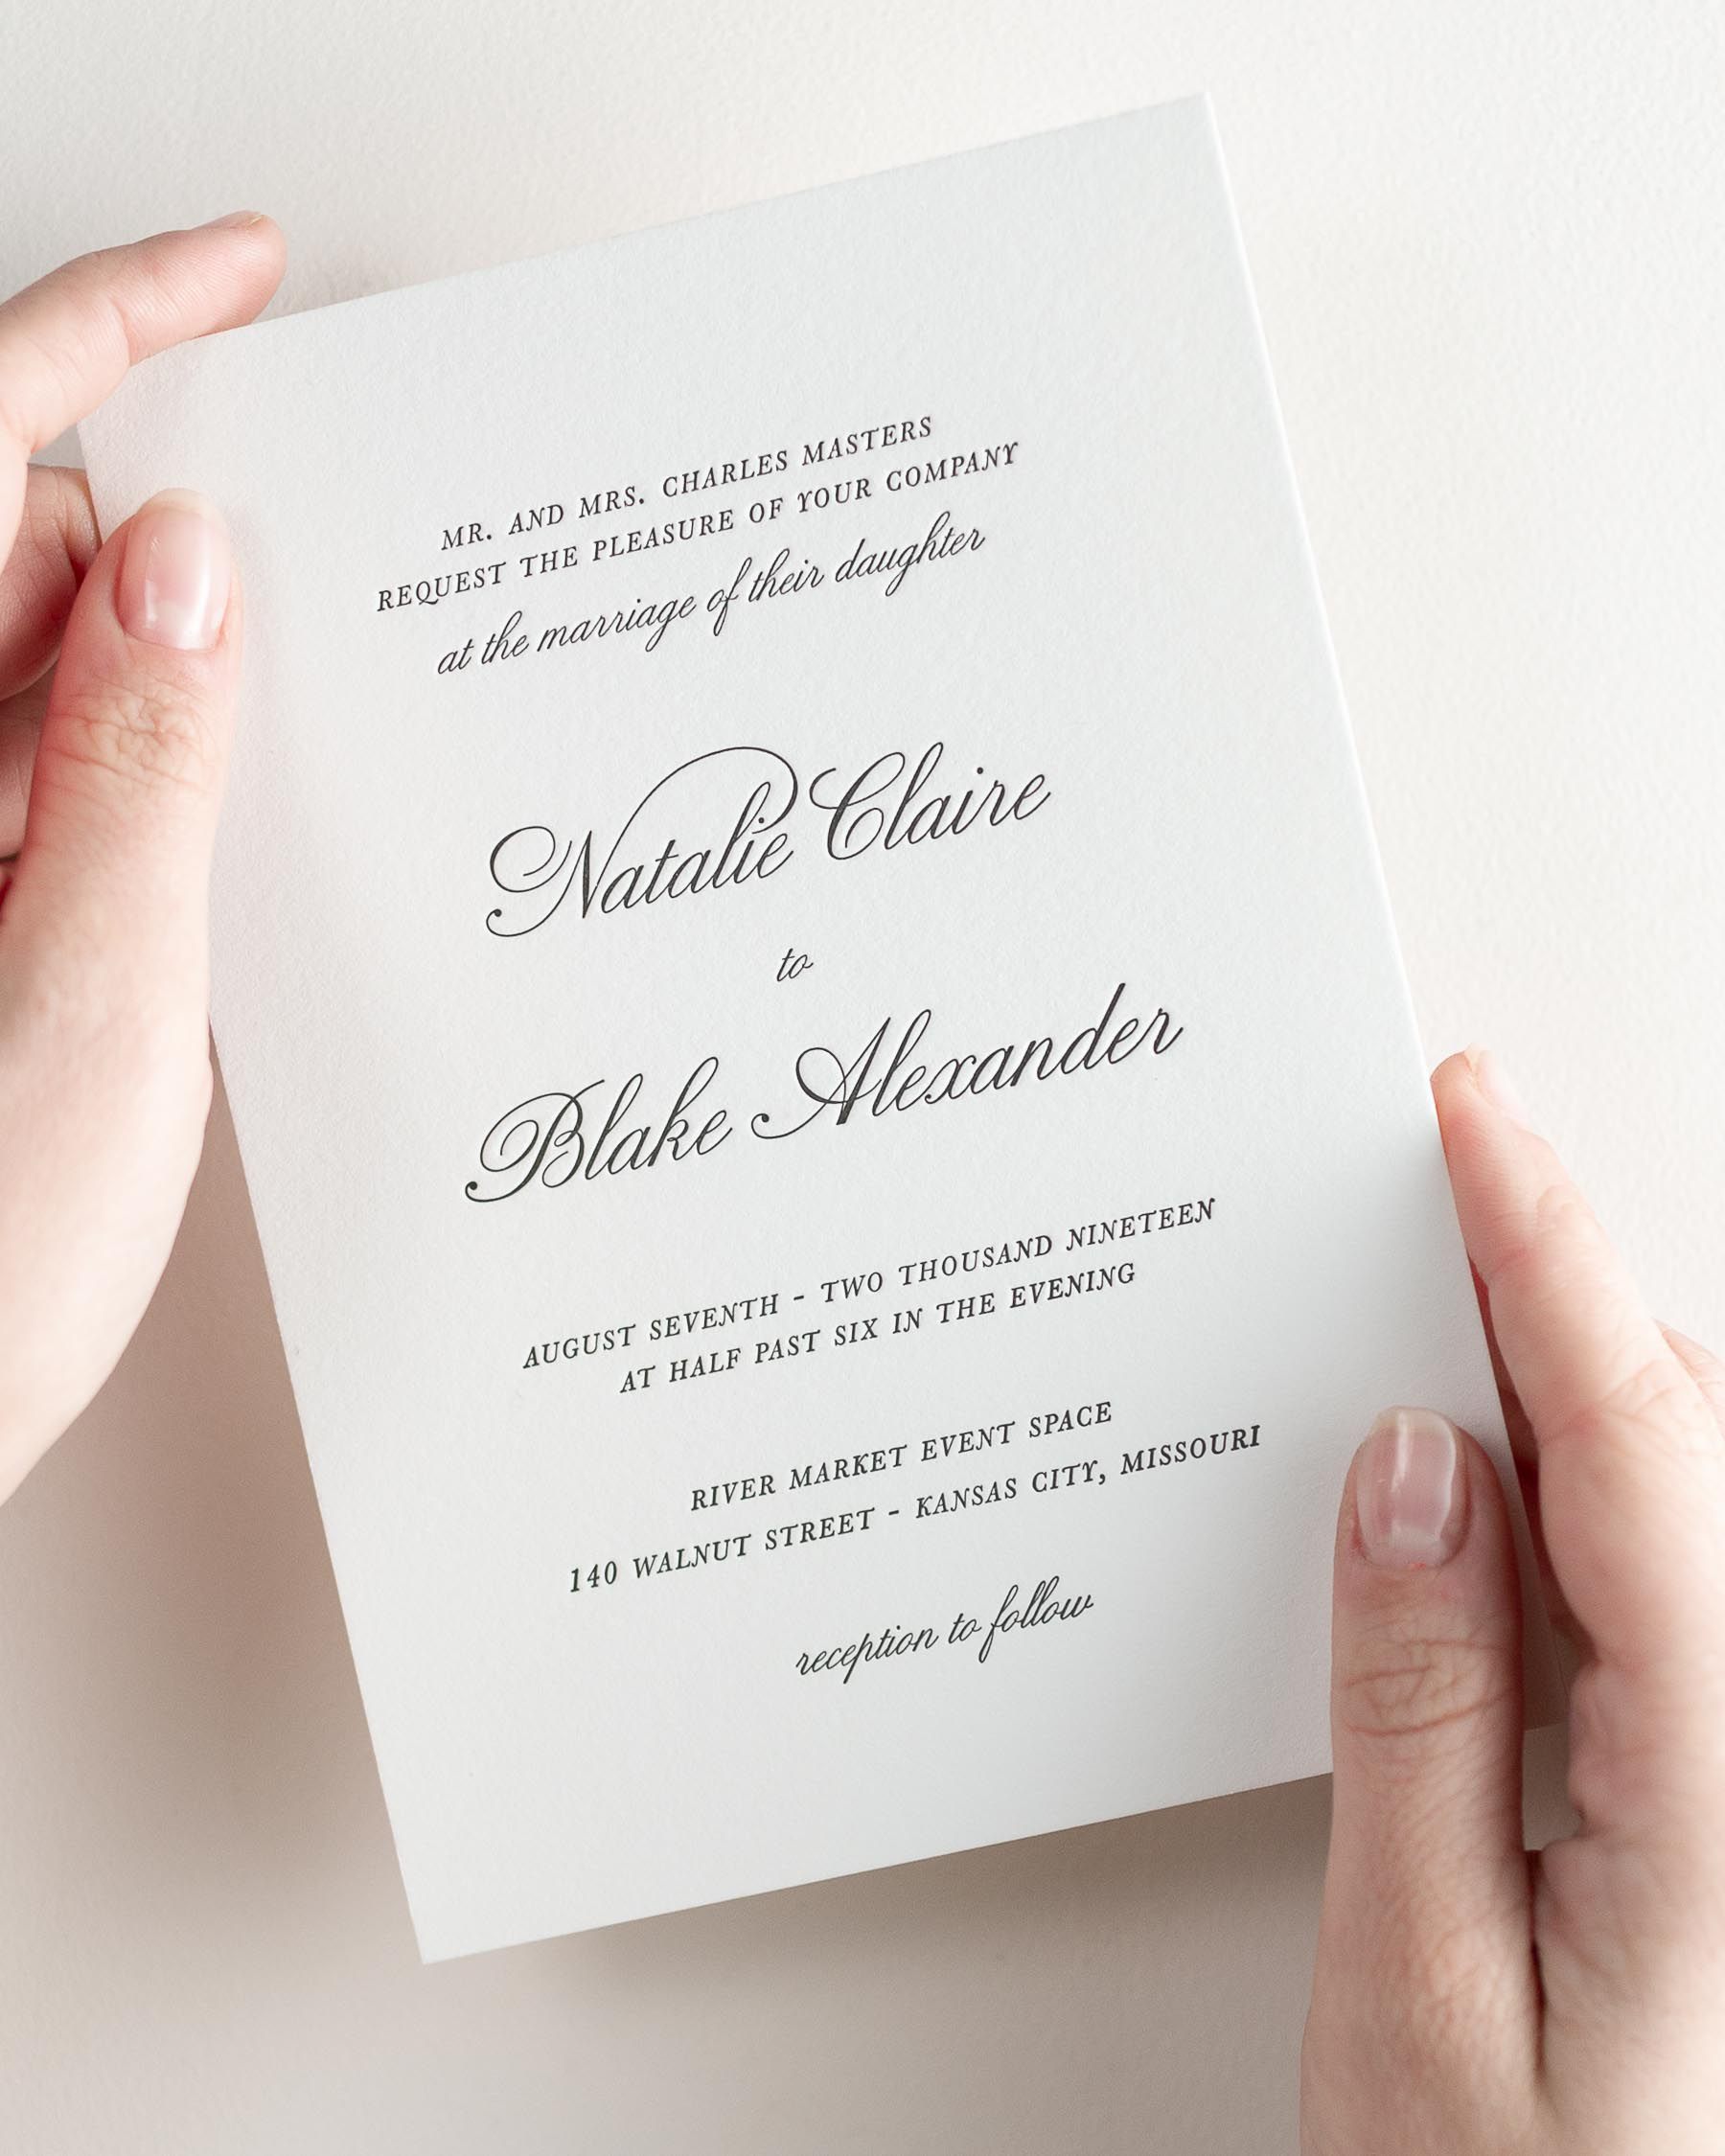 MR. AND MRS. CHARLES MASTERS
REQUEST THE PLEASURE OF YOUR COMPANY
at the marriage of their daughter
Natalie Claire
to
Blake Alexander
AUGUST SEVENTH - TWO THOUSAND NINETEEN
AT HALF PAST SIX IN THE EVENING
RIVER MARKET EVENT SPACE
140 WALNUT STREET - KANSAS CITY, MISSOURI
reception to follow